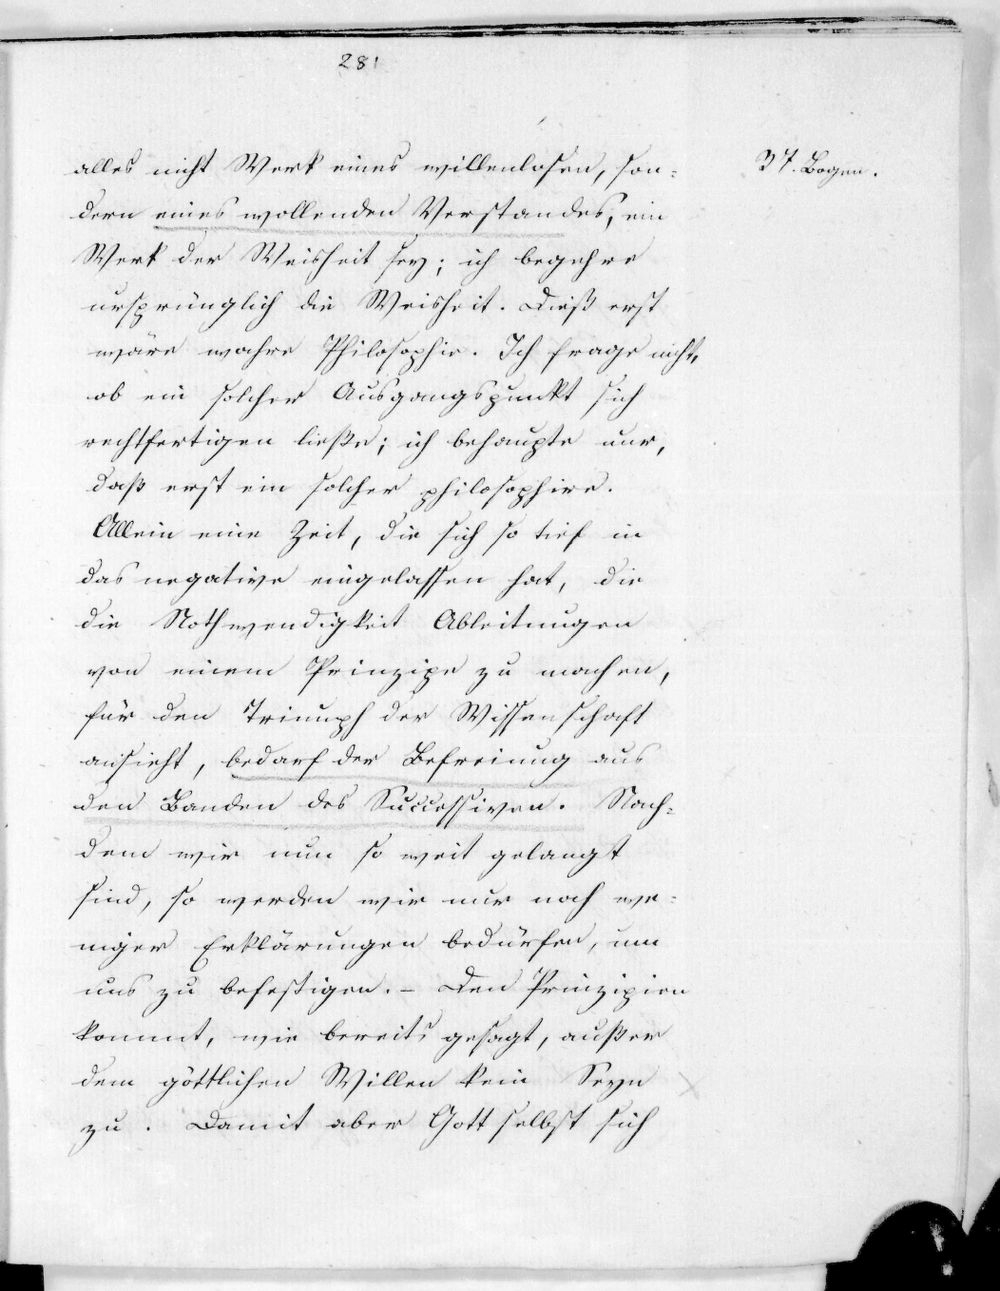 281
37. Bogen.
alles nicht Werk eines willenlosen, son-
dern eines wollenden Verstandes, ein
Werk der Weisheit sey; ich begehre
ursprünglich die Weisheit. Dieß erst
wäre wahre Philosophie. Ich frage nicht,
ob ein solcher Ausgangspunkt sich
rechtfertigen ließe; ich behaupte nur,
daß erst ein solcher philosophire.
Allein eine Zeit, die sich so tief in
das negative eingelassen hat, die
die Nothwendigkeit Ableitungen
von einem Prinzipe zu machen,
für den Triumph der Wissenschaft
ansieht, bedarf der Befreiung aus
den Banden des Successiven. Nach-
dem wir nun so weit gelangt
sind, so werden wir nur noch we-
niger Erklärungen bedürfen, um
uns zu befestigen. – Den Prinzipien
kommt, wie bereits gesagt, außer
dem göttlichen Willen kein Seyn
zu. Damit aber Gott selbst sich